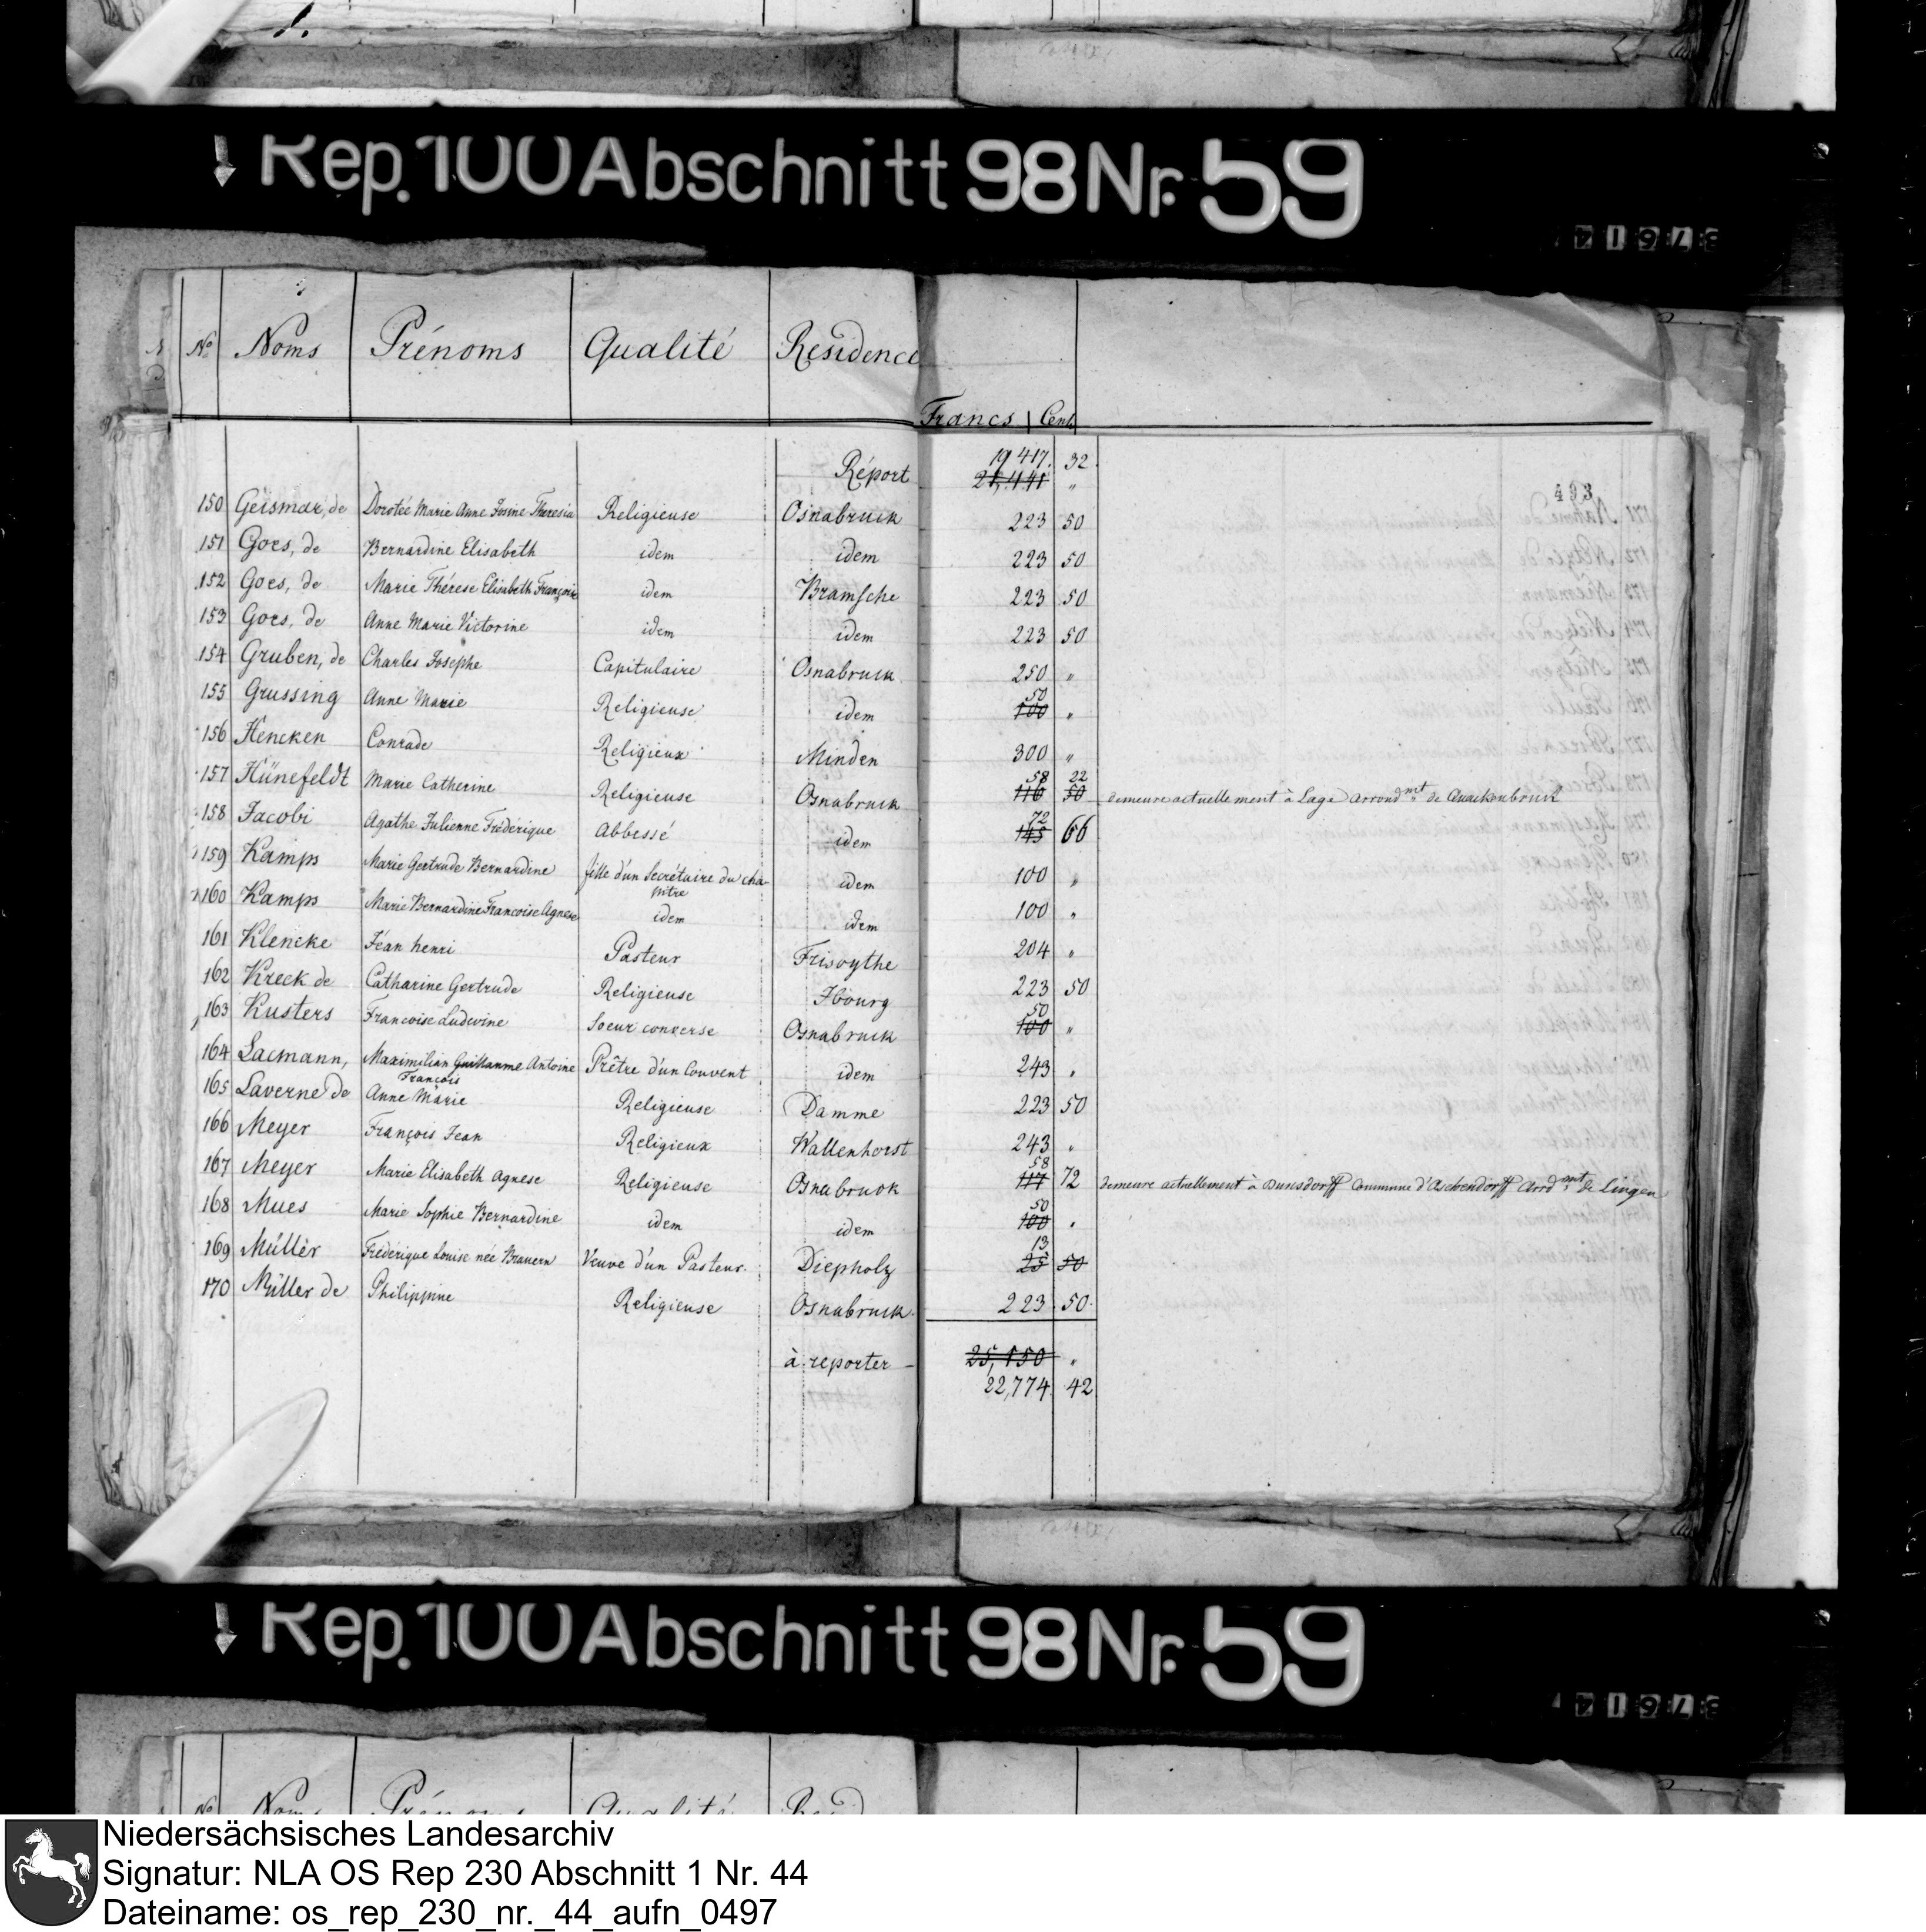 Rep. 100 Abschnitt 98 Nr. 59
37614
No Noms Prénoms Qualité Residence
Francs Cent.
Réport 19 417. 32.
21,441 "
493
150 Geismar, de Dorotée Marie Anne Josine Theresia Religieuse Osnabruck 223 50
151 Goes, de Bernardine Elisabeth idem idem 223 50
152 Goes, de Marie Thérese Elisabeth Françoise idem Bramsche 223 50
153 Goes, de Anne Marie Victorine idem idem 223 50
154 Gruben, de Charles Josephe Capitulaire Osnabruck 250 "
155 Grussing Anne Marie Religieuse idem 50 100 "
156 Hencken Conrade Religieux Minden 300 "
157 Hünefeldt Marie Catherine Religieuse Osnabruck 58 22 116 50 demeure actuellement à Lage arrondmt de Quackenbruck
158 Jacobi Agathe Julienne Fréderique Abbessé idem 72 145 66
159 Kamps Marie Gertrude Bernardine fille d'un Secrétaire du cha-
pitre idem 100 "
160 Kamps Marie Bernardine Francoise Agnese idem idem 100 "
161 Klencke Jéan henri Pasteur Frisoythe 204 "
162 Kreck de Catharine Gertrude Religieuse Ibourg 223 50
163 Kusters Francoise Ludevine Soeur converse Osnabruck 50 100 "
164 Lacmann, Maximilian Guillaume Antoine Prêtre d'un Couvent idem 243 "
François
165 Laverne de Anne Marie Religieuse Damme 223 50
166 Meyer François Jean Religieux Wallenhorst 243 "
167 Meyer Marie Elisabeth Agnese Religieuse Osnabruck 58 117 72 demeure actuellement à Commune d'Aschendorff Arrdmt de Lingen
168 Mues Marie Sophie Bernardine idem idem 50 100 "
169 Müller Fréderique Louise née Brauern Veuve d'un Pasteur Diepholz 13 25 50
170 Müller de Philippine Religieuse Osnabruck 223 50.
à reporter 25,150 "
22,774 42
Rep. 100 Abschnitt 98 Nr. 59
37614
No Noms Prénoms Qualité
Niedersächsisches Landesarchiv
Signatur: NLA OS Rep 230 Abschnitt 1 Nr. 44
Dateiname: os_rep_230_nr._44_aufn_0497